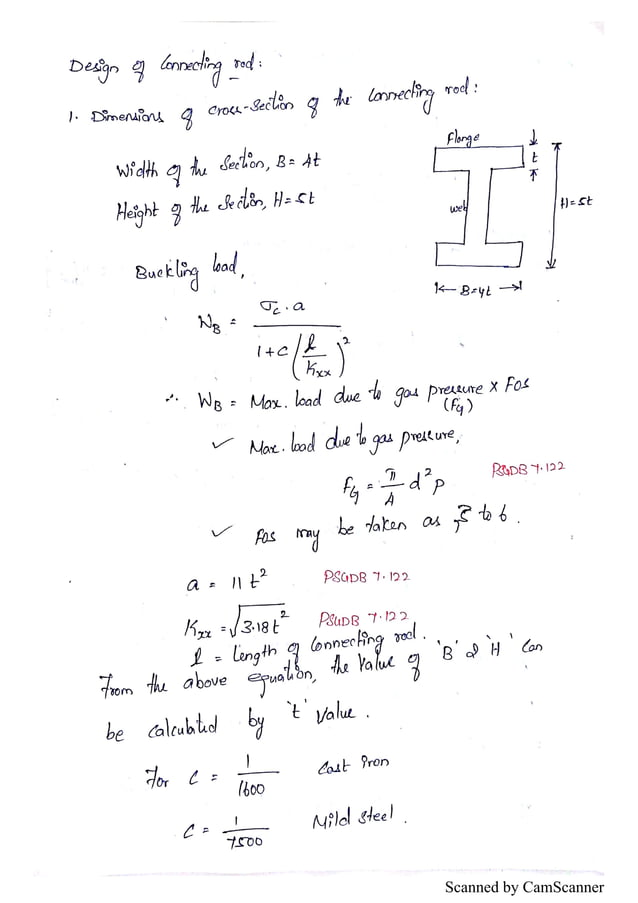 Design of Connecting rod:
1. Dimensions of cross-section of the connecting rod:
Width of the Section, B = 4t
Height of the Section, H = 5t
Flange
t
web
H = 5t
B = 4t
Buckling load,
W_B = σ_c · a / (1 + C (l / K_xx)²)
∴ W_B = Max. load due to gas pressure × FOS
(F_G)
✓ Max. load due to gas pressure,
F_G = π/4 d² p PSGDB 7.122
✓ FOS may be taken as 5 to 6.
a = 11t² PSGDB 7.122
K_xx = √3.18t² PSGDB 7.122
l = Length of Connecting rod.
From the above equation, the value of 'B' & 'H' can
be calculated by 't' value.
For C = 1/1600 Cast Iron
C = 1/7500 Mild Steel.
Scanned by CamScanner